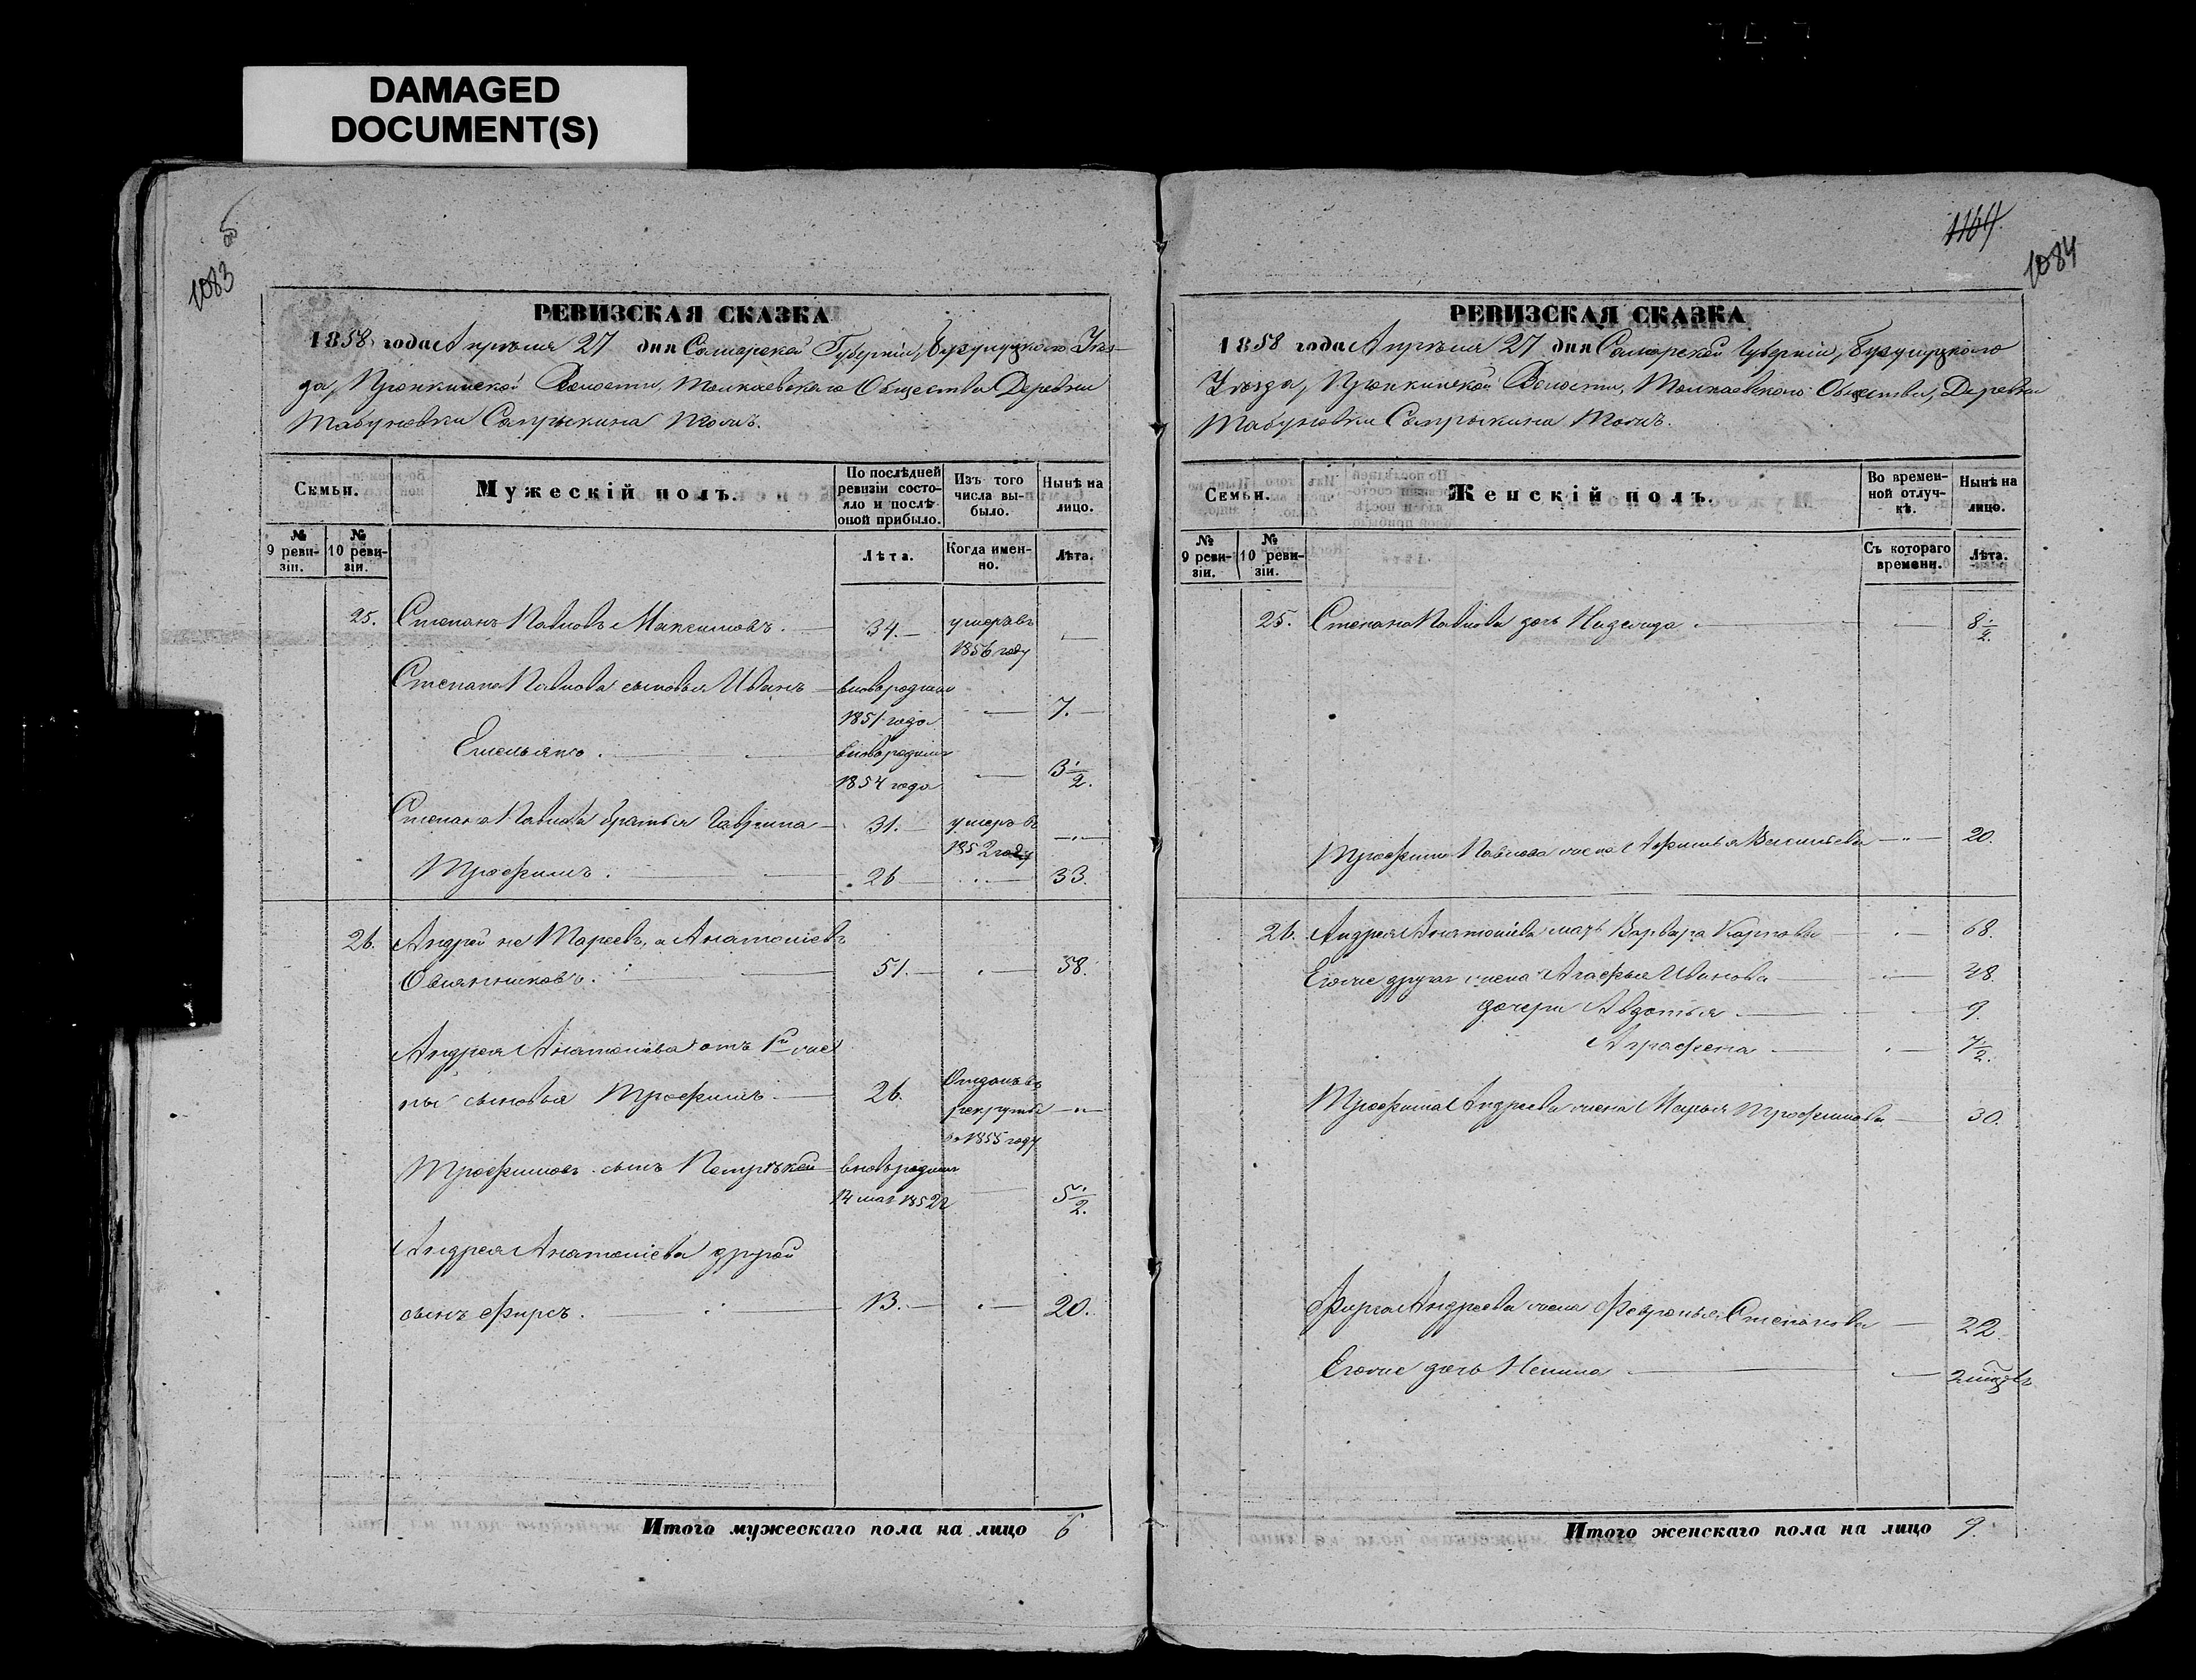 DAMAGED
DOCUMENT(S)
5
1083
РЕВИЗСКАЯ СКАЗКА
1858 года Апреля 27 дня Самарской Губерніи, Бузулуцкаго Уѣз-
да, Пронкинской Волости, Толкаевскаго Общества Деревни
Табуновки Сапрыкина тожъ.
Семьи.
Мужескій полъ.
По послѣдней ревизіи состояло и послѣ оной прибыло.
Изъ того числа выбыло.
Нынѣ на лицо.
№ 9 ревизіи.
№ 10 ревизіи.
Лѣта.
Когда именно.
Лѣта.
25. Степанъ Павловъ Максимовъ. 34. умеръ въ 1856 году
Степана Павлова сыновья Иванъ вновьрожден 1851 года 7.
Емельянъ. вновьрожден 1854 года 3 1/2.
Степана Павлова братья Гаврила 31. умеръ въ 1852 году
Трофимъ. 26 33.
26. Андрей не Мареевъ, а Анатоліевъ
Овчинниковъ. 51. 58.
Андрея Анатоліева отъ 1й же
ны сыновья Трофимъ. 26. Отданъ въ рекруты въ 1855 году
Трофимовъ сынъ Патрикѣй вновьрожден 14 мая 1852 г 5 1/2.
Андрея Анатоліева другой
сынъ Фирсъ. 13. 20.
Итого мужескаго пола на лицо 6
1164
1084
РЕВИЗСКАЯ СКАЗКА
1858 года Апрѣля 27 дня Самарской Губерніи, Бузулуцкаго
Уѣзда, Пронкинской Волости, Толкаевскаго Общества, Деревни
Табуновки Сапрыкина тожъ.
Семьи.
Женскій полъ.
Во временной отлучкѣ.
Нынѣ на лицо.
№ 9 ревизіи.
№ 10 ревизіи.
Съ котораго времени.
Лѣта.
25. Степана Павлова дочь 8 1/2.
Трофима Павлова жена Афимья Васильева 20.
26. Андрея Анатоліева мать Варвара Карпова 68.
Егоже другая жена Агафья Иванова 48.
дочери Авдотья 9.
Аграфена 7 1/2.
Трофима Андреева жена Марья Трофимова 30.
Фирса Андреева жена Февронья Степанова 22.
Егоже дочь Ненила
Итого женскаго пола на лицо 9.